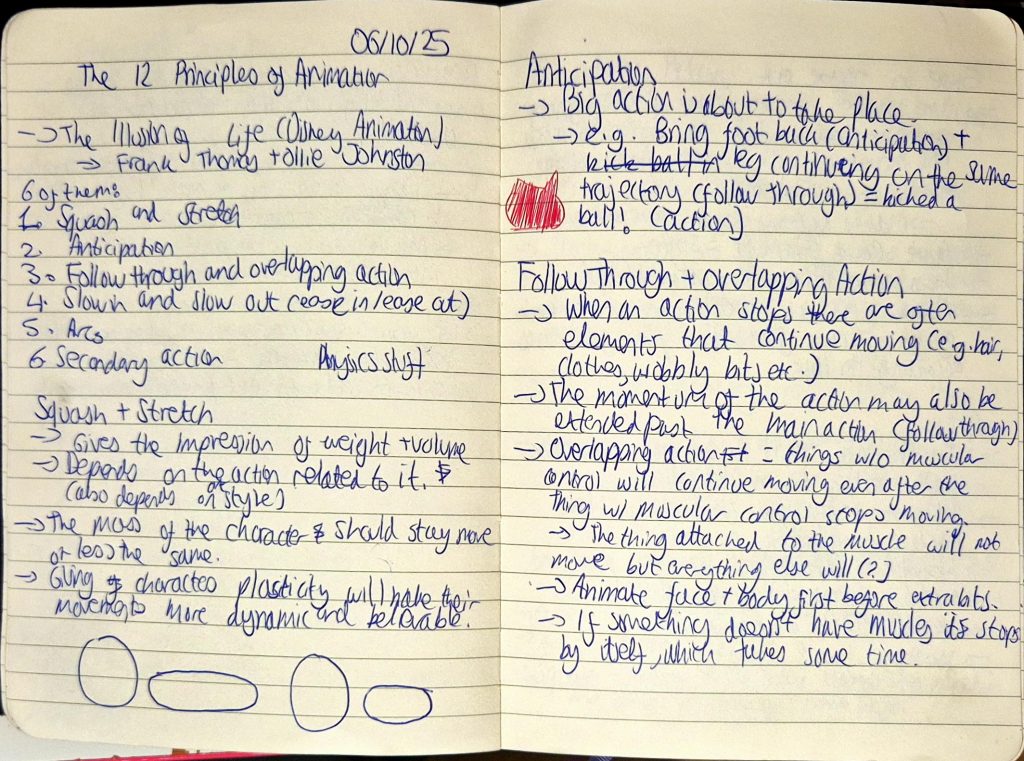 06/10/25
The 12 Principles of Animation
→ The Illusion of Life (Disney Animation)
→ Frank Thomas + Ollie Johnston
6 of them:
1. Squash and Stretch
2. Anticipation
3. Follow through and overlapping action
4. Slow in and slow out (ease in/ease out)
5. Arcs
6. Secondary action Physics stuff
Squash + Stretch
→ Gives the impression of weight + volume
→ Depends on the action related to it.
(also depends on style)
→ The mass of the character should stay more
or less the same.
→ Giving characters plasticity will make their
movements more dynamic and believable.
Anticipation
→ Big action is about to take place.
→ e.g. Bring foot back (anticipation) +
kick ball in leg continuing on the same
trajectory (follow through) = kicked a
ball! (action)
Follow Through + Overlapping Action
→ When an action stops there are often
elements that continue moving (e.g. hair,
clothes, wobbly bits etc.)
→ The momentum of the action may also be
extended past the main action (follow through)
→ Overlapping action = things w/o muscular
control will continue moving even after the
thing w/ muscular control stops moving.
→ The thing attached to the muscle will not
move but everything else will (?)
→ Animate face + body first before extra bits.
→ If something doesn't have muscles it stops
by itself, which takes some time.